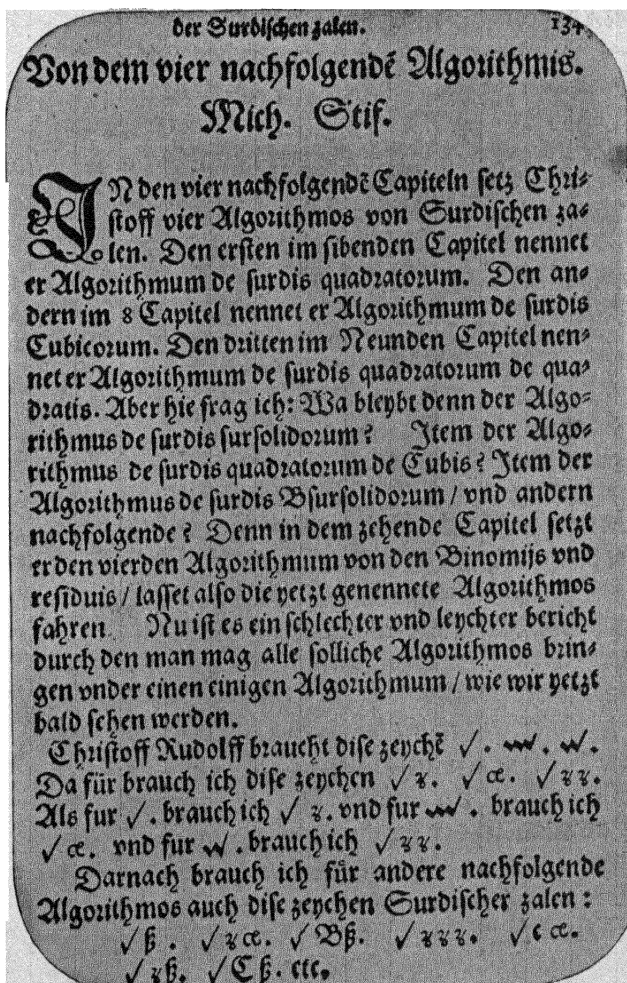 der Surdischen zalen. 134.
Von dem vier nachfolgendẽ Algorithmis.
Mich. Stif.
IN den vier nachfolgendẽ Capiteln setz Chri⸗
stoff vier Algorithmos von Surdischen za⸗
len. Den ersten im sibenden Capitel nennet
er Algorithmum de surdis quadratorum. Den an⸗
dern im 8 Capitel nennet er Algorithmum de surdis
Cubicorum. Den dritten im Neunden Capitel nen⸗
net er Algorithmum de surdis quadratorum de qua⸗
dratis. Aber hie frag ich: Wa bleybt denn der Algo⸗
rithmus de surdis sursolidorum? Item der Algo⸗
rithmus de surdis quadratorum de Cubis? Item der
Algorithmus de surdis Bsursolidorum / vnd andern
nachfolgende? Denn in dem zehende Capitel setzt
er den vierden Algorithmum von den Binomijs vnd
residuis / lasset also die yetzt genennete Algorithmos
fahren. Nu ist es ein schlechter vnd leychter bericht
durch den man mag alle solliche Algorithmos brin⸗
gen vnder einen einigen Algorithmum / wie wir yetzt
bald sehen werden.
Christoff Rudolff braucht dise zeychẽ √. . .
Da für brauch ich dise zeychen √ʒ. √ce. √ʒʒ.
Als fur √. brauch ich √ʒ. vnd fur . brauch ich
√ce. vnd fur . brauch ich √ʒʒ.
Darnach brauch ich für andere nachfolgende
Algorithmos auch dise zeychen Surdischer zalen:
√ß. √ʒce. √Bß. √ʒʒʒ. √cce.
√ʒß. √Cß. etc.